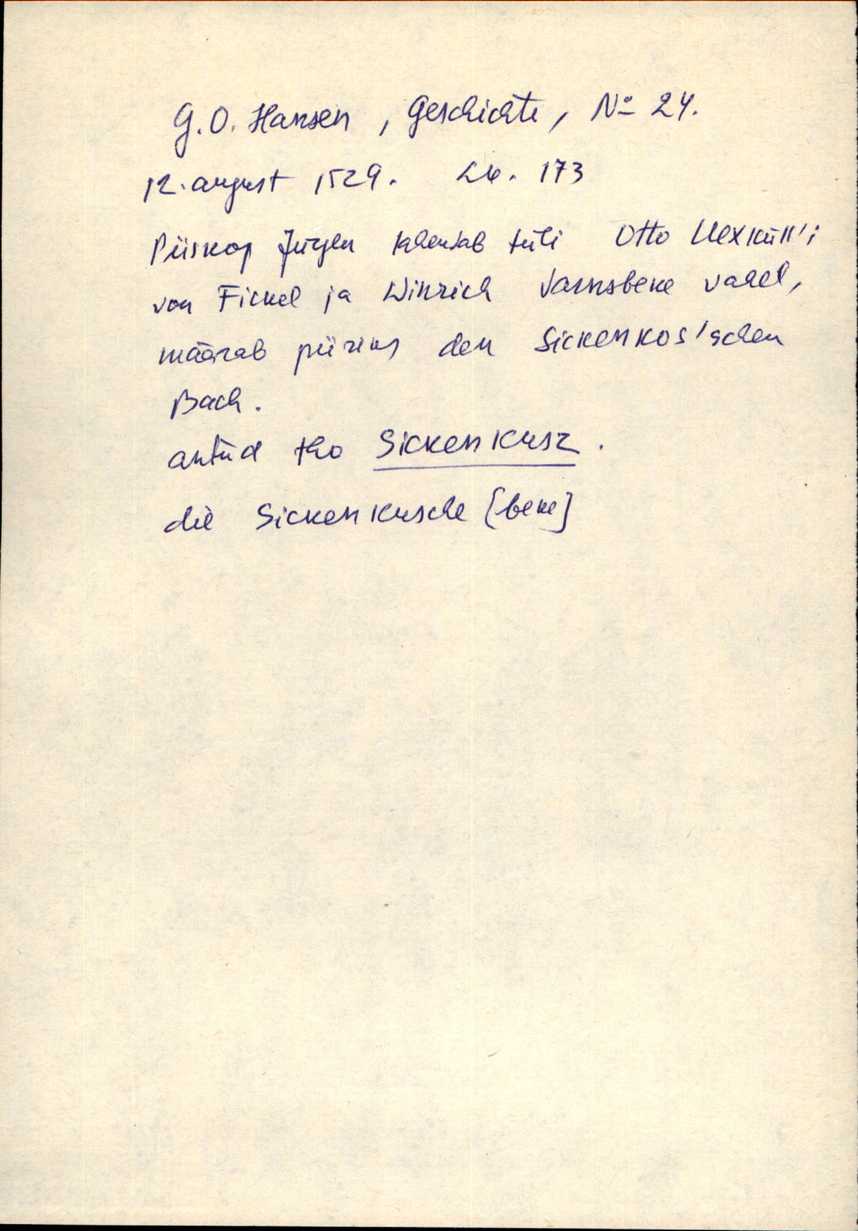 G.O. Hansen, Geschichte, No 24.
12. august 1529. Lk. 173
Piiskop Jürgen lahendab tüli Otto Uexküll'i
von Fickel ja Winrich Varnsbeke vahel,
määrab piiriks den Sickenkos'schen
Bach.
antũd tho Sickenkusz.
die Sickenkusche [beke]